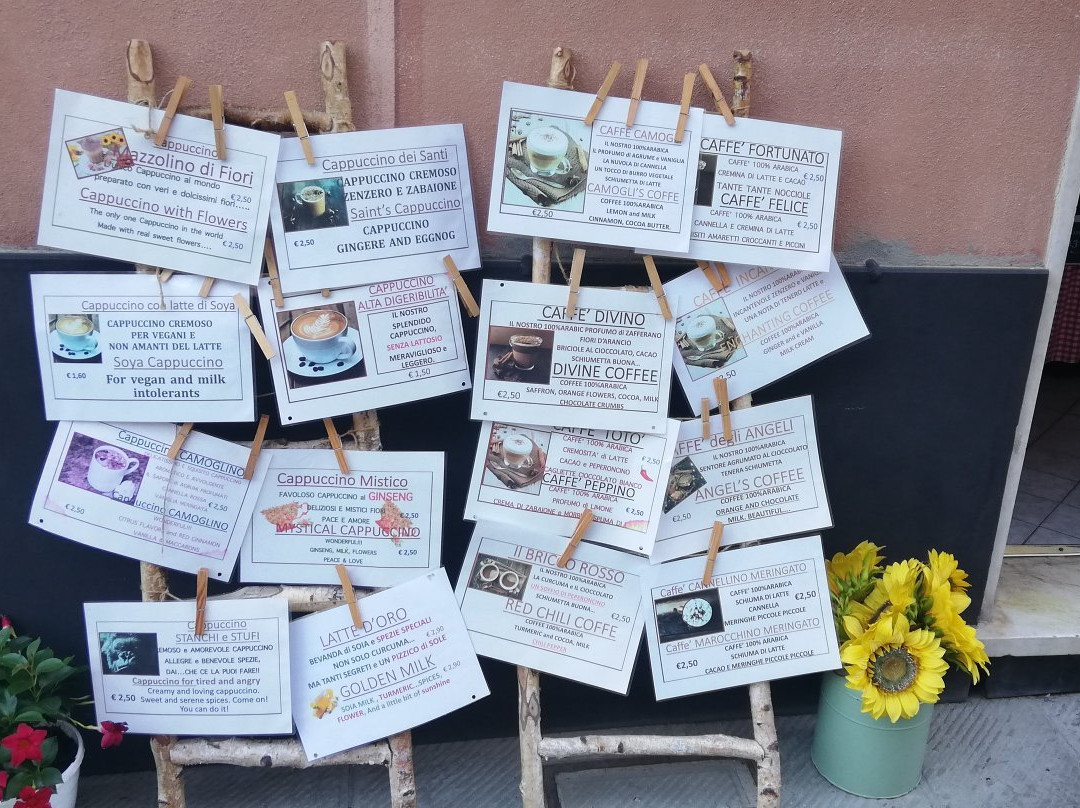 Cappuccino
Mazzolino di Fiori
Cappuccino al mondo
preparato con veri e dolcissimi fiori.....
€ 2,50
Cappuccino with Flowers
The only one Cappuccino in the world
Made with real sweet flowers....
€ 2,50
Cappuccino dei Santi
CAPPUCCINO CREMOSO
ZENZERO E ZABAIONE
Saint's Cappuccino
€ 2,50
CAPPUCCINO
GINGERE AND EGGNOG
Cappuccino con latte di Soya
CAPPUCCINO CREMOSO
PER VEGANI E
NON AMANTI DEL LATTE
Soya Cappuccino
€ 1,60
For vegan and milk
intolerants
CAPPUCCINO
ALTA DIGERIBILITA'
IL NOSTRO
SPLENDIDO
CAPPUCCINO,
SENZA LATTOSIO
MERAVIGLIOSO e
LEGGERO.
€ 1,50
Cappuccino CAMOGLINO
Cappuccino CAMOGLINO
WONDERFUL!!!
CITRUS FLAVOR and RED CINNAMON
VANILLA & MACCARONS
Cappuccino Mistico
FAVOLOSO CAPPUCCINO al GINSENG
DELIZIOSI E MISTICI FIORI
PACE E AMORE
€ 2,50
MYSTICAL CAPPUCCINO
WONDERFUL!!!
GINSENG, MILK, FLOWERS
PEACE & LOVE
€ 2,50
Cappuccino
STANCHI e STUFI
CREMOSO e AMOREVOLE CAPPUCCINO
ALLEGRE e BENEVOLE SPEZIE,
DAI...CHE CE LA PUOI FARE!!
Cappuccino for tired and angry
€ 2,50
Creamy and loving cappuccino.
Sweet and serene spices. Come on!
You can do it!
LATTE D'ORO
BEVANDA di SOIA e SPEZIE SPECIALI
NON SOLO CURCUMA...
€ 2,90
MA TANTI SEGRETI e UN PIZZICO di SOLE
GOLDEN MILK
€ 2,90
SOIA MILK, TURMERIC...SPICES,
FLOWER, And a little bit of sunshine
CAFFÈ CAMOGLI
IL NOSTRO 100%ARABICA
IL PROFUMO di AGRUME e VANIGLIA
LA NUVOLA DI CANNELLA
UN TOCCO DI BURRO VEGETALE
SCHIUMETTA DI LATTE
CAMOGLI'S COFFE
€2,50
COFFEE 100%ARABICA
LEMON and MILK
CINNAMON, COCOA BUTTER.
CAFFE' FORTUNATO
CAFFE' 100% ARABICA
CREMINA DI LATTE E CACAO
€ 2,50
TANTE TANTE NOCCIOLE
CAFFE' FELICE
CAFFE' 100% ARABICA
CANNELLA E CREMINA DI LATTE
€ 2,50
AMARETTI CROCCANTI E PICCINI
CAFFE' DIVINO
IL NOSTRO 100%ARABIC PROFUMO di ZAFFERANO
FIORI D'ARANCIO
BRICIOLE AL CIOCCOLATO, CACAO
SCHIUMETTA BUONA...
DIVINE COFFEE
COFFEE 100%ARABICA
€2,50
SAFFRON, ORANGE FLOWERS, COCOA, MILK
CHOCOLATE CRUMBS
IL NOSTRO 100%ARABICA
INCANTEVOLE ZENZERO e VANIGLIA
UNA NOTA DI TENERO LATTE e
ENCHANTING COFFEE
GINGER and e VANILLA
MILK CREAM
CAFFE' TOTO'
CAFFE' 100% ARABICA
CREMOSITA' di LATTE
CACAO e PEPERONCINO
€ 2,50
CIOCCOLATO BIANCO
CAFFE' PEPPINO
CAFFE' 100% ARABICA
PROFUMO di LIMONE
€ 2,50
CAFFE' degli ANGELI
IL NOSTRO 100%ARABICA
SENTORE AGRUMATO AL CIOCCOLATO
TENERA SCHIUMETTA
ANGEL'S COFFEE
€2,50
COFFEE 100%ARABICA
ORANGE AND CHOCOLATE
MILK, BEAUTIFUL....
Il BRICCO ROSSO
IL NOSTRO 100%ARABICA
LA CURCUMA e IL CIOCCOLATO
UN SOFFIO DI PEPERONCINO
SCHIUMETTA BUONA...
€2,50
RED CHILI COFFE
COFFEE 100%ARABICA
TURMERIC and COCOA, MILK
CHILI PEPPER
Caffe' CANNELLINO MERINGATO
CAFFE' 100% ARABICA
SCHIUMA DI LATTE
€2,50
CANNELLA
MERINGHE PICCOLE PICCOLE
Caffe' MAROCCHINO MERINGATO
CAFFE' 100% ARABICA
€2,50
SCHIUMA DI LATTE
CACAO E MERINGHE PICCOLE PICCOLE